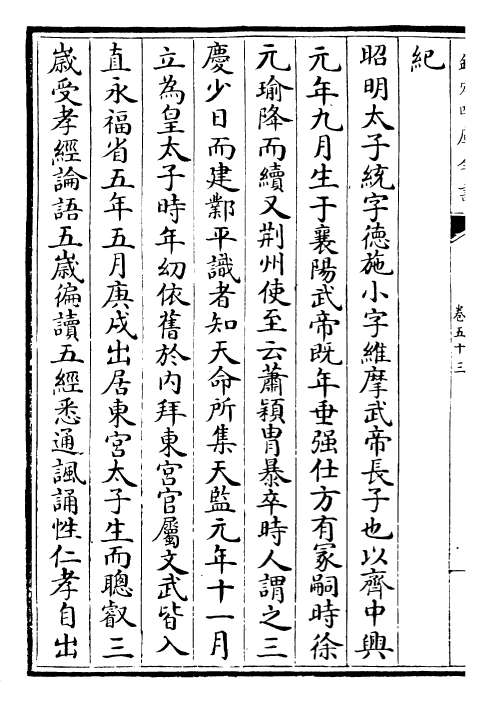 欽定四庫全書
卷五十三
紀
昭明太子統字德施小字維摩武帝長子也以齊中興
元年九月生于襄陽武帝既年垂强仕方有冢嗣時徐
元瑜降而續又荆州使至云蕭穎胄暴卒時人謂之三
慶少日而建鄴平識者知天命所集天監元年十一月
立為皇太子時年幼依舊於内拜東宫官屬文武皆入
直永福省五年五月庚戌出居東宫太子生而聰叡三
嵗受孝經論語五嵗徧讀五經悉通諷誦性仁孝自出